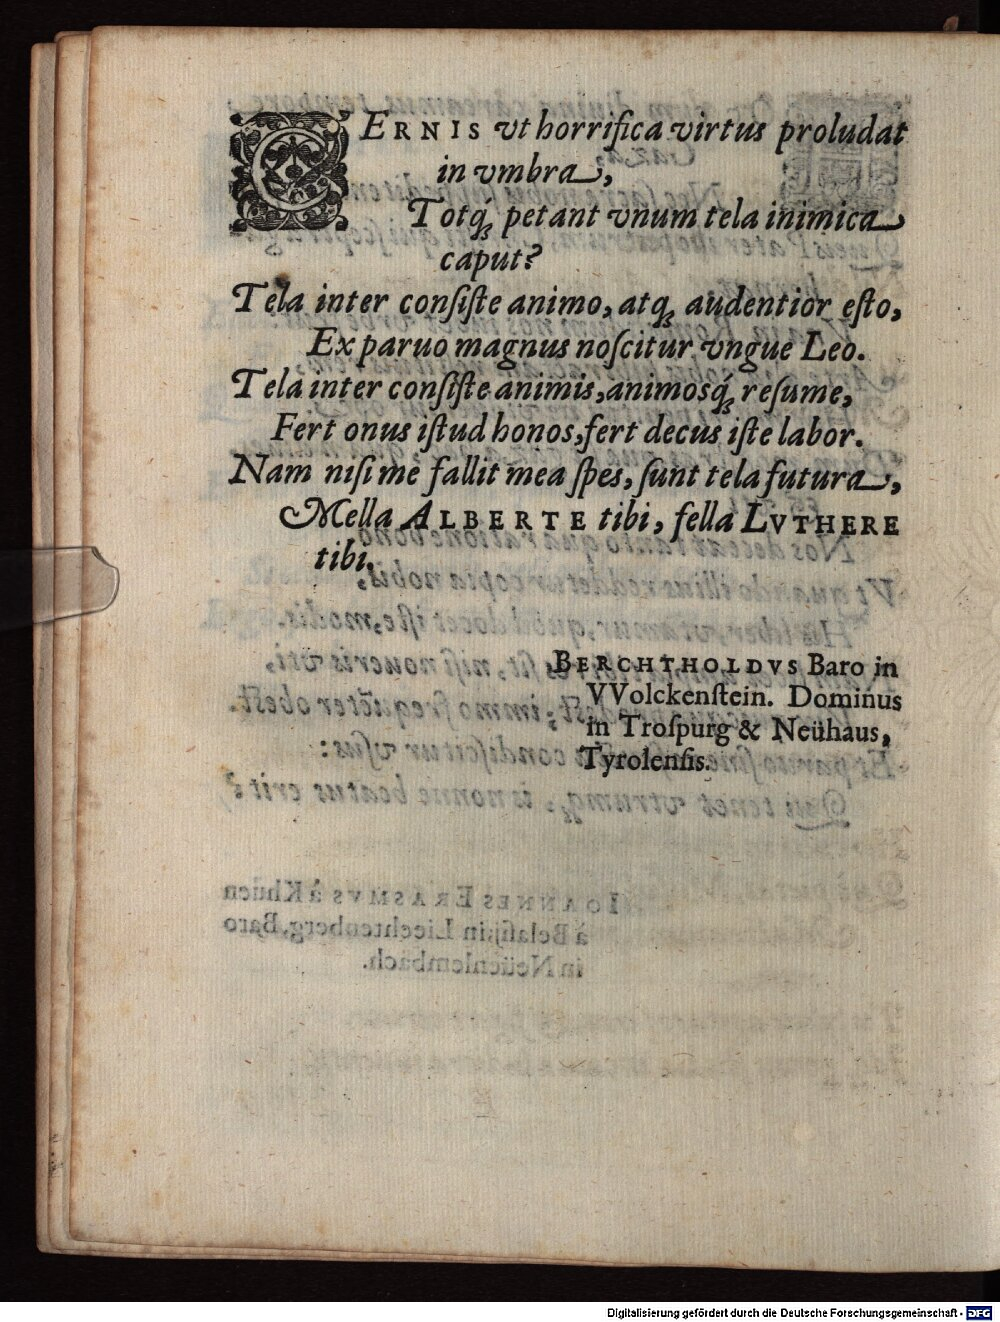 CERNIS vt horrifica virtus proludat
in vmbra,
Totq́; petant vnum tela inimica
caput?
Tela inter conſiſte animo, atq; audentior eſto,
Ex paruo magnus noſcitur vngue Leo.
Tela inter conſiſte animis, animosq́; reſume,
Fert onus iſtud honos, fert decus iſte labor.
Nam niſi me fallit mea ſpes, ſunt tela futura,
Mella ALBERTE tibi, fella LVTHERE
tibi.
BERCHTHOLDVS Baro in
VVolckenſtein. Dominus
in Troſpurg & Neühaus,
Tyrolenſis.
Digitalisierung gefördert durch die Deutsche Forschungsgemeinschaft - DFG